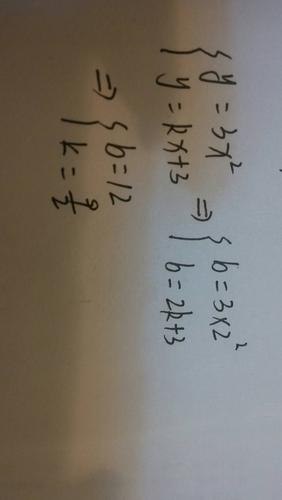 { y = 3x²
y = kx+3 ⇒ { b = 3×2²
b = 2k+3
⇒ { b = 12
k = 9/2